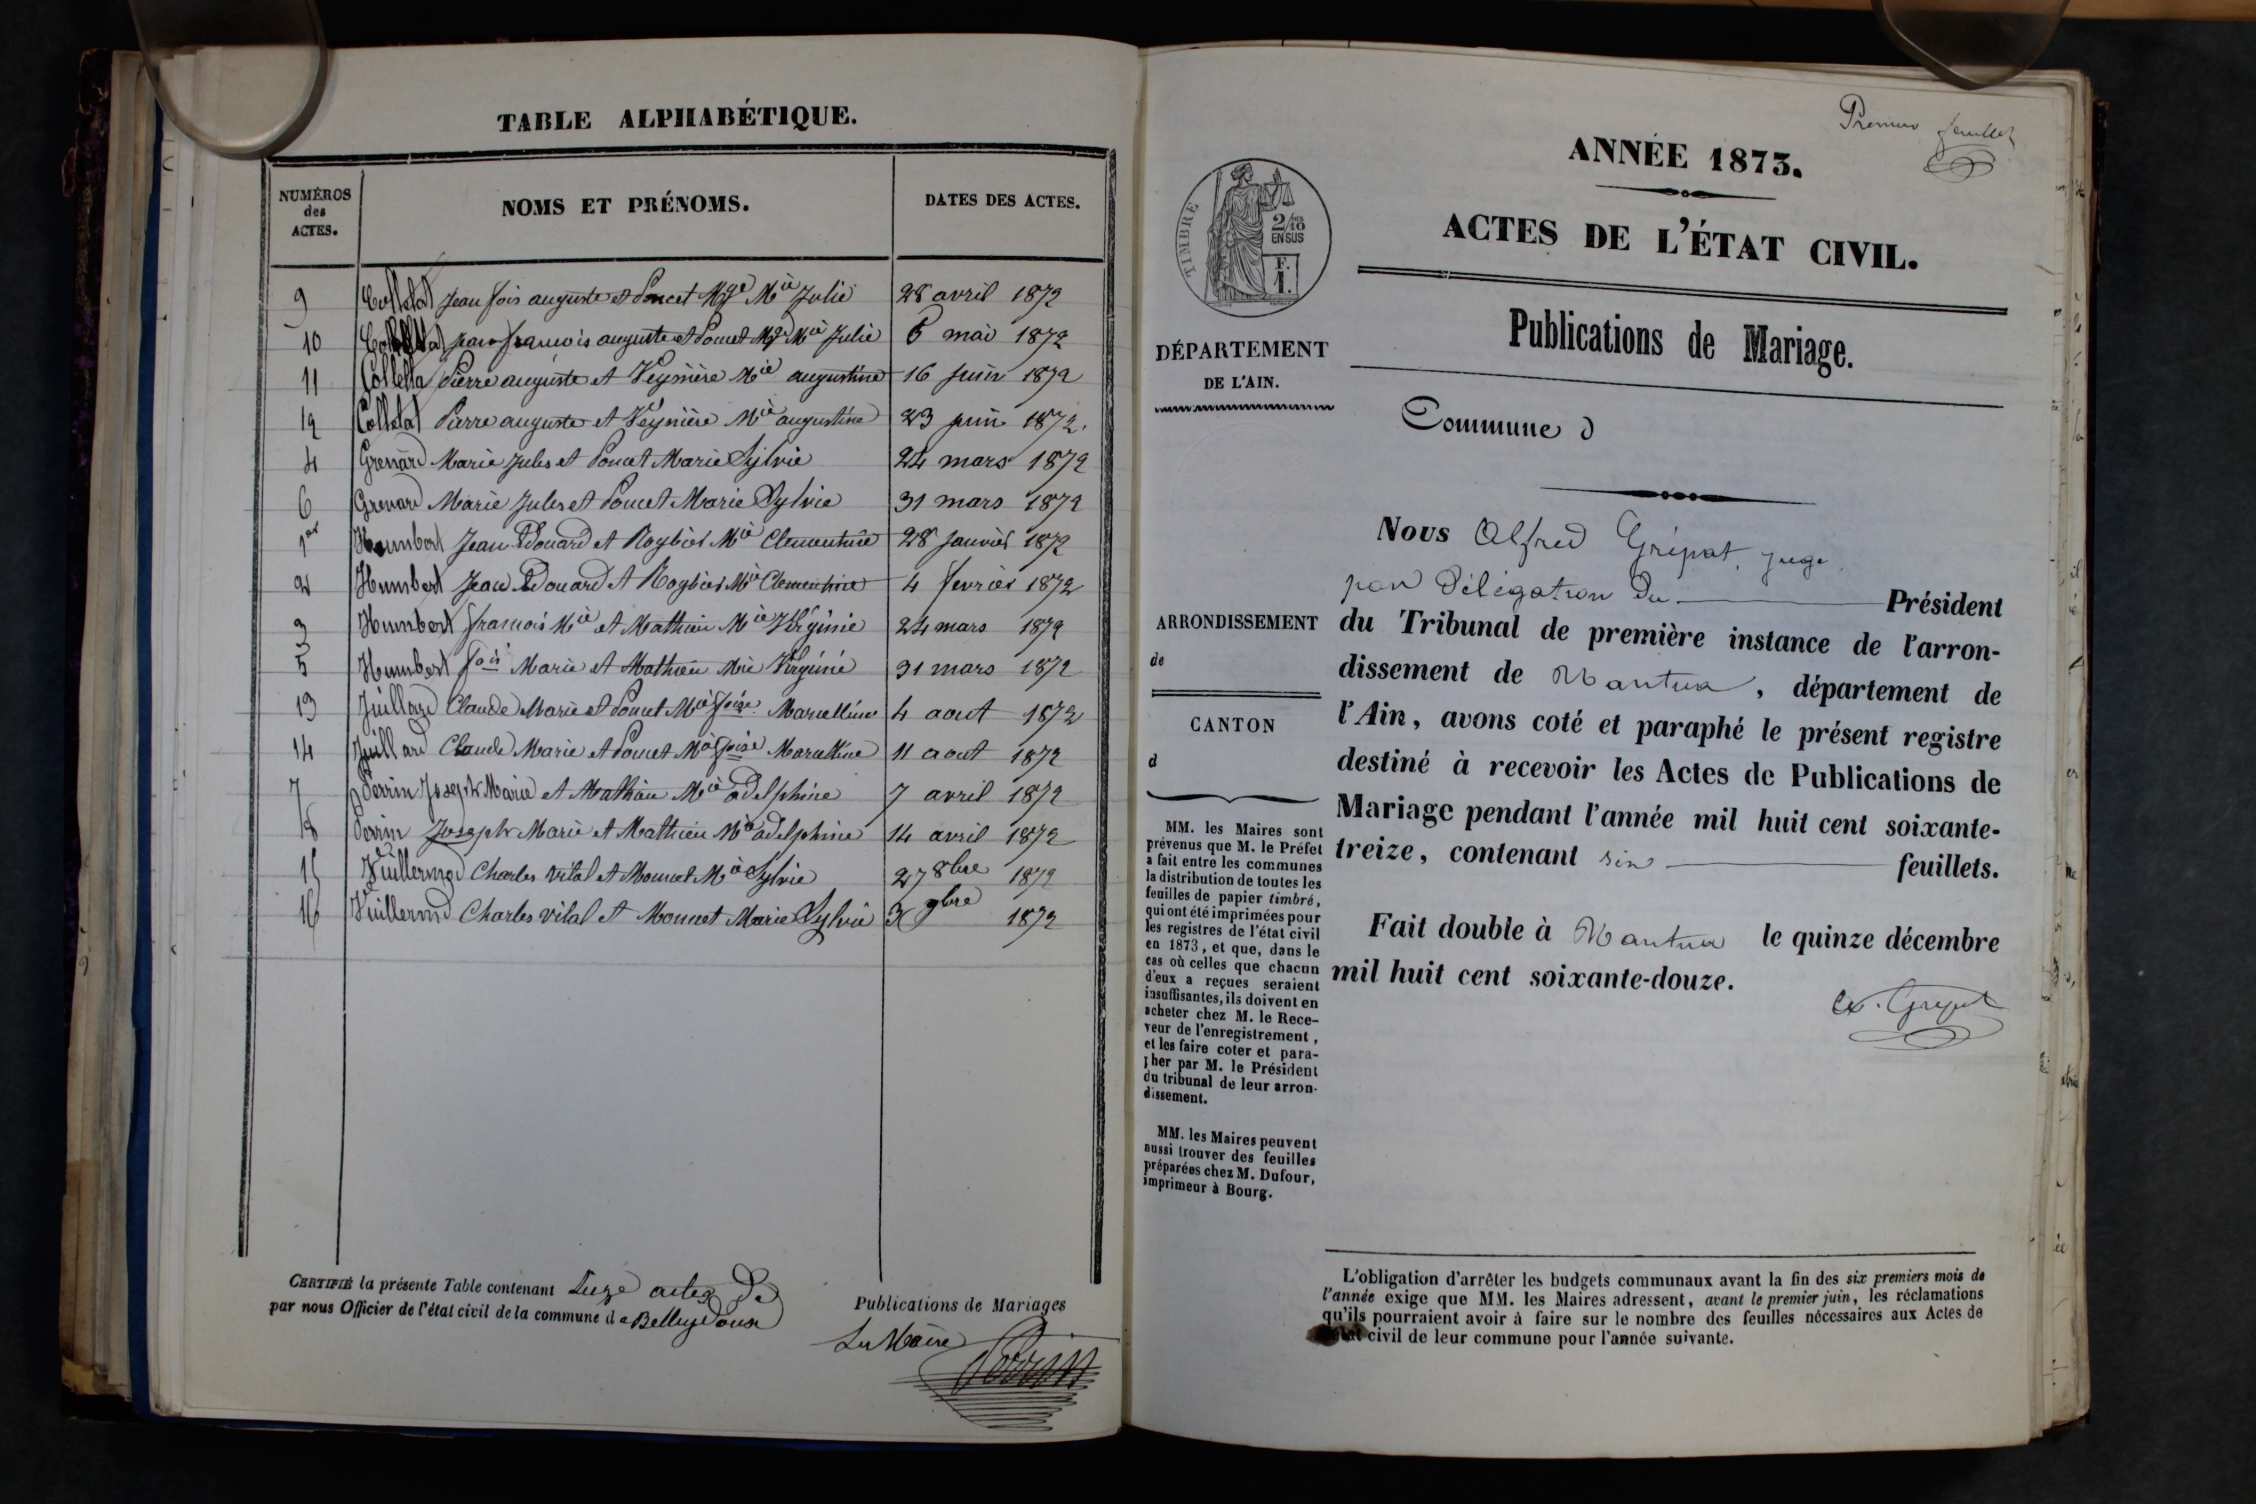 TABLE ALPHABÉTIQUE.
NUMÉROS des ACTES. NOMS ET PRÉNOMS. DATES DES ACTES.
9 Colletat Jean fois auguste et Poncet Mie Julie 28 avril 1872
10 jean françois auguste et Poncet Mie Julie 5 mai 1872
11 Colletta Pierre auguste et Veyrière Mie augustine 16 juin 1872
12 Colletat Pierre auguste et Veyrière Mie augustine 23 juin 1872.
4 Grenard Marie Jules et Poncet Marie Sylvie 24 mars 1872
6 Grenard Marie Jules et Poncet Marie Sylvie 31 mars 1872
1er Humbert Jean Edouard et Roybier Mie Clementine 28 janvier 1872
2 Humbert Jean Edouard et Roybier Mie Clementine 4 fevrier 1872
3 Humbert françois Mie et Mathieu Mie Virginie 24 mars 1872
5 Humbert fois Marie et Mathieu Mie Virginie 31 mars 1872
13 Juillard Claude Marie et Poncet Mie foise Marcelline 4 aout 1872
14 Juillard Claude Marie et Poncet Mie foise Marcelline 11 aout 1872
7 Perrin Joseph Marie et Mathieu Mie adelphine 7 avril 1872
Perrin Joseph Marie et Mathieu Mie adelphine 14 avril 1872
15 Vuillermod Charles Vital et Mounet Mie Sylvie 27 8bre 1872
16 Vuillermod Charles Vital et Mounet Marie Sylvie 3 9bre 1872
CERTIFIÉ la présente Table contenant actes de Publications de Mariages
par nous Officier de l'état civil de la commune de Belleydoux
Le Maire
Perrin
Premier feuillet
ANNÉE 1873.
ACTES DE L'ÉTAT CIVIL.
Publications de Mariage.
TIMBRE
2/10 EN SUS
F. 1.
DÉPARTEMENT
DE L'AIN.
ARRONDISSEMENT
de
CANTON
d
MM. les Maires sont
prévenus que M. le Préfet
a fait entre les communes
la distribution de toutes les
feuilles de papier timbré,
qui ont été imprimées pour
les registres de l'état civil
en 1873, et que, dans le
cas où celles que chacun
d'eux a reçues seraient
insuffisantes, ils doivent en
acheter chez M. le Rece-
veur de l'enregistrement,
et les faire coter et para-
pher par M. le Président
du tribunal de leur arron-
dissement.
MM. les Maires peuvent
aussi trouver des feuilles
préparées chez M. Dufour,
imprimeur à Bourg.
Commune d
Nous Alfred Grépat, juge
par délégation du Président
du Tribunal de première instance de l'arron-
dissement de Nantua, département de
l'Ain, avons coté et paraphé le présent registre
destiné à recevoir les Actes de Publications de
Mariage pendant l'année mil huit cent soixante-
treize, contenant six feuillets.
Fait double à Nantua le quinze décembre
mil huit cent soixante-douze.
L'obligation d'arrêter les budgets communaux avant la fin des six premiers mois de
l'année exige que MM. les Maires adressent, avant le premier juin, les réclamations
qu'ils pourraient avoir à faire sur le nombre des feuilles nécessaires aux Actes de
l'état civil de leur commune pour l'année suivante.